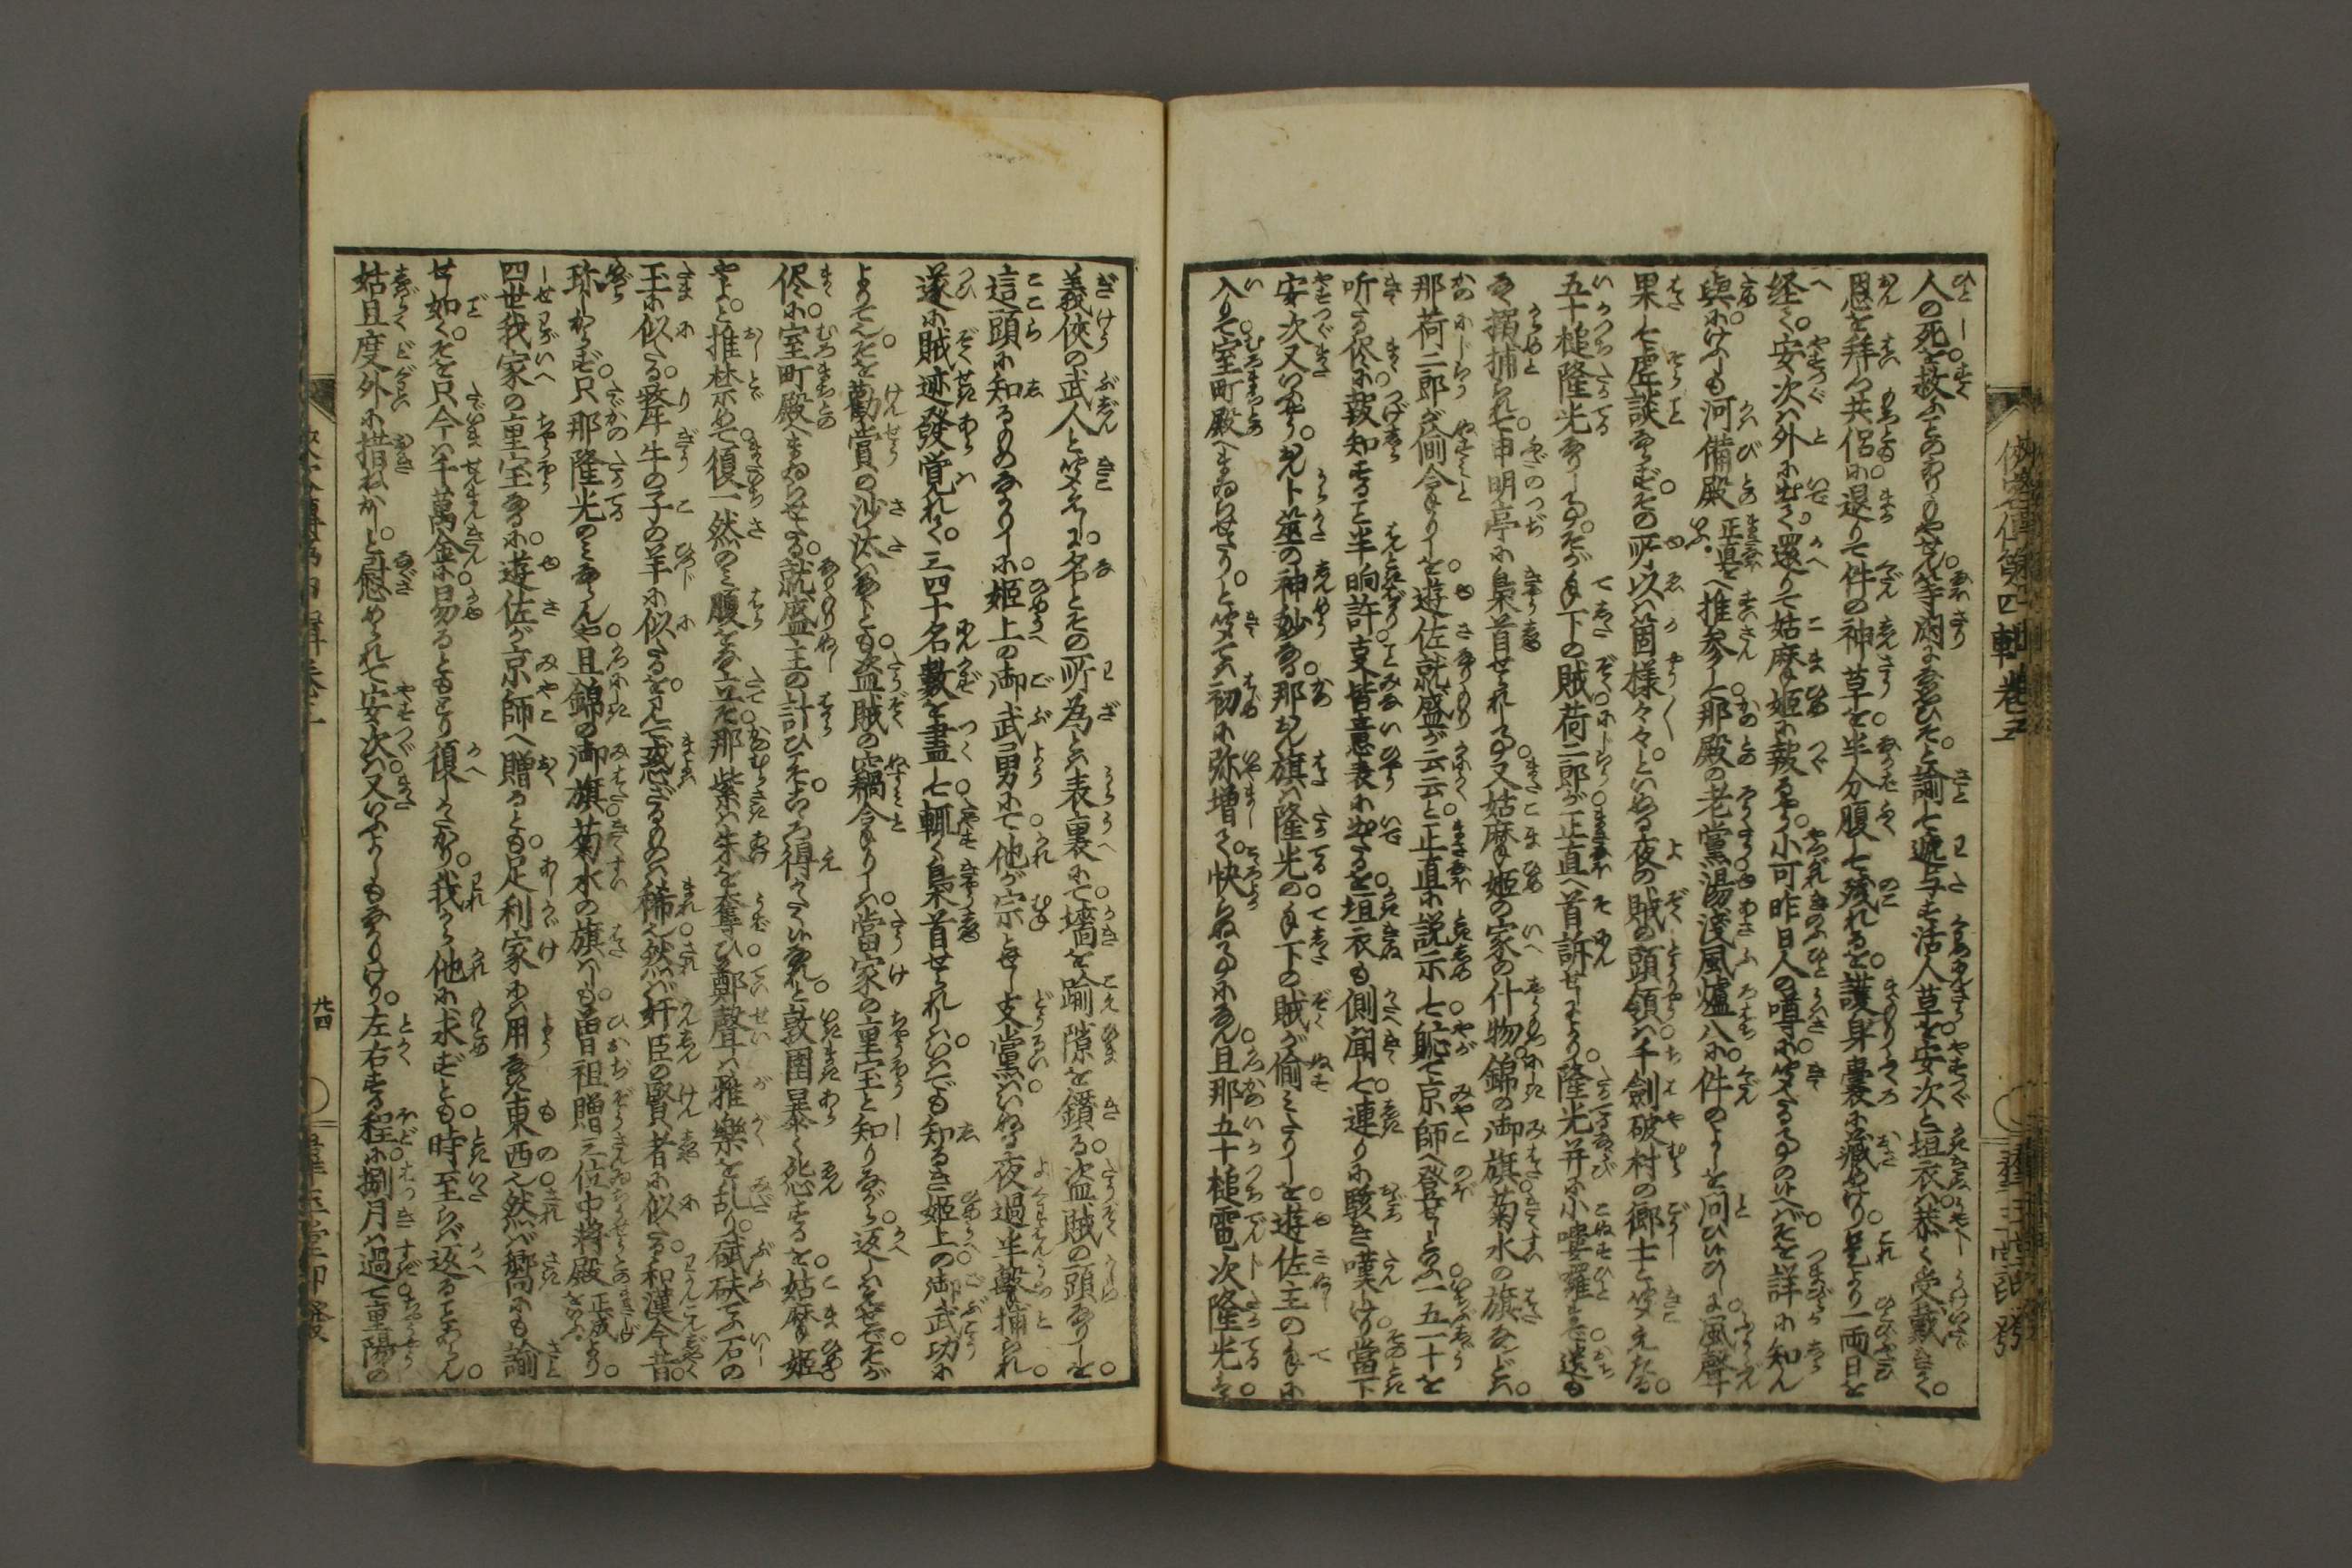 人の死を救ふこのありもやせん。等閑になせそ。と諭して逓与す活人草を安次と垣衣は恭く受戴きて。
恩を拝しつ共侶に退りて件の神草を半分腹して残れるを。護身嚢に蔵めけり。是より一両日を
経て。安次は外に出て。還りて姑摩姫に報るやう。小可昨日人の噂に聞えたる事の候へばそを詳に知ん
與に。けふしも河備殿 正直をいふ。へ推参して那殿の老黨湯浅風爐八に。件のよしを問ひ候ひしに。風聲
果して虚談ならず。その所以は箇様々々。といぬる夜の賊の頭領は千劍破村の郷士と聞えたる。
五十槌隆光なりし事。そが手下の賊荷二郎が正直へ首訴せしにより。隆光并に小嘍羅まで送も
なく搦捕られて。申明亭に梟首せられし事。又姑摩姫の家の什物。錦の御旗菊水の旗などは。
那荷二郎が偸令たりしを。遊佐就盛が云云と。正直に説示して。軈て京師へ登せしといふ一五一十を
听たる侭に報知すること半晌許。事皆意表に出たるを。垣衣も側聞して。連りに駭き嘆じけり。當下
安次又いふやう。現卜筮の神妙なる。那錦旗は隆光の手下の賊が偸みたりしを。遊佐主の手に
入りて。室町殿へまゐらせたり。と聞ては初に弥増て。快らぬ事になん。且那五十槌電次隆光は。
義侠の武人と聞えし。名とその所為とは表裏にて。墻を踰隙を鑽る。盗賊の頭なりしを。
這頭に知るものなかりしに。姫上の御武勇にて。他が宗とせし支黨は。いぬる夜過半撃捕られ。
遂に賊迹發覚れて。三四十名數を盡して輒く梟首せられしは。いはでも知るき姫上の。御武功に
よりてなるを。勧賞の沙汰はあらずとも。盗賊の竊令たりしは。當家の重宝と知りながら。返しもせで。そが
侭に。室町殿へまゐらせたる。就盛主の計ひこそ。こゝろ得がたく候なれ。と敦圉暴く怨ずるを。姑摩姫
やよ。と推禁めて。復一然のみ腹をな立そ。那紫は朱を奪ひ。鄭聲は雅樂を乱り。碔砆てふ石の
玉に似たる。犂牛の子の羊に似たるを。見て惑ざるものは稀也。然ば奸臣の賢者に似たる。和漢今昔。
珍しからず。只那隆光のみならんや。且錦の御旗。菊水の旗はしも。曽祖贈三位中将殿 正成をいふ。より。
四世我家の重宝なるに。遊佐が京師へ贈るとも。足利家には用なき東西也。然ば郷にも諭す
せ如く。そを只今は千萬金に易るともとり復しがたかり。我から他に求ずとも。時至らば返ることあらん。
姑且度外に措ねかし。と慰められて安次は。又いふよしもなかりけり。左右する程に捌月は過て。重陽の
侠客傳第四輯巻五
廿四